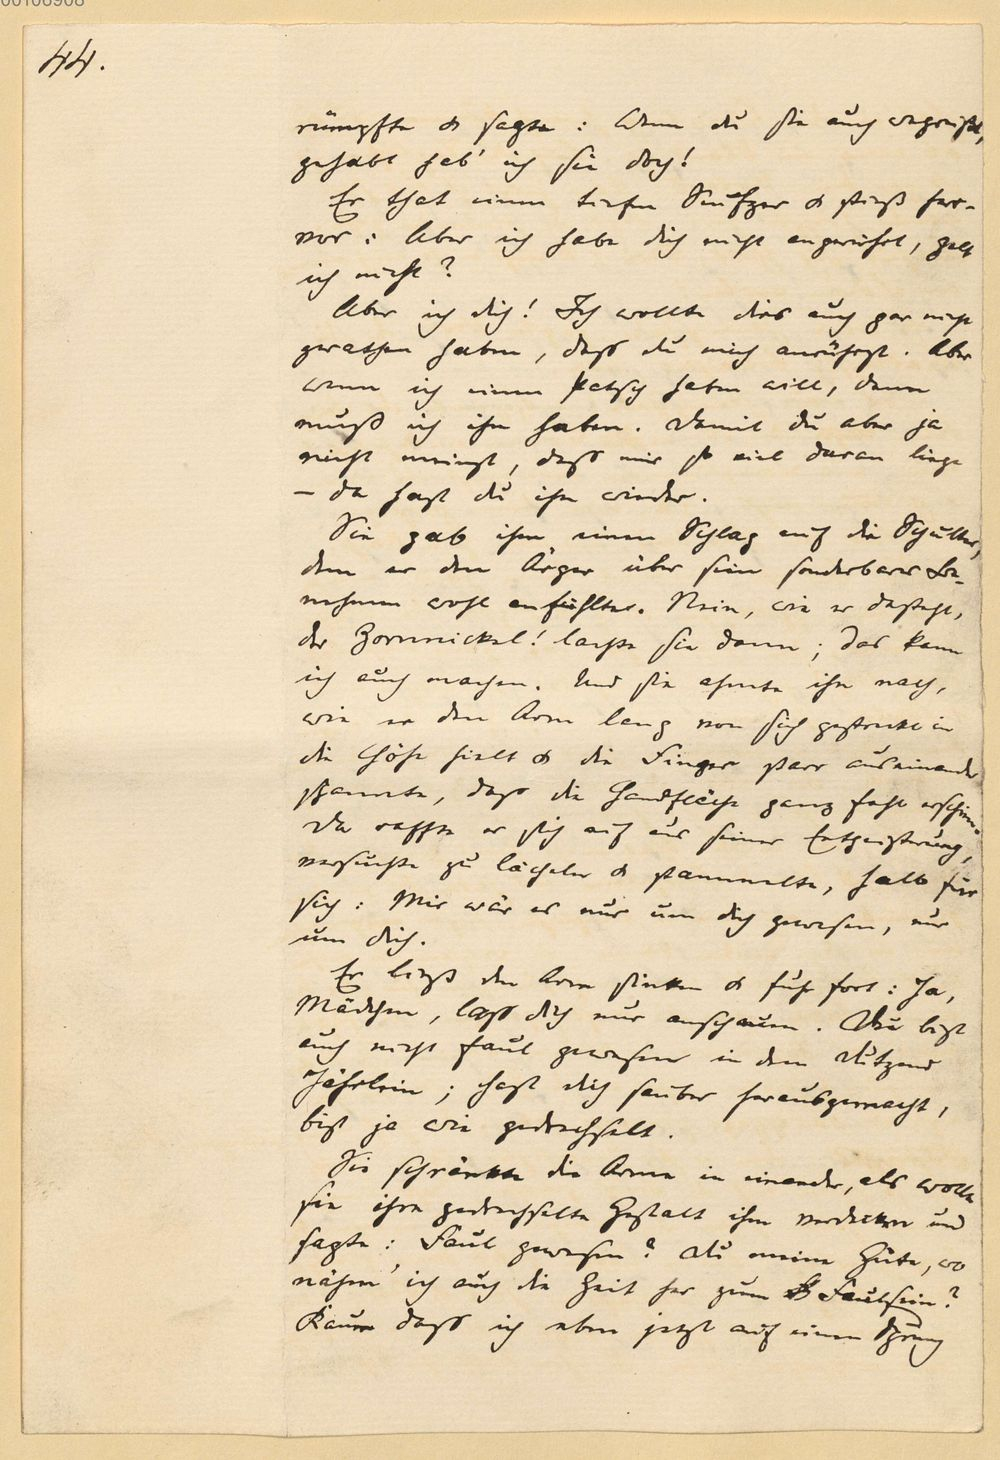 00106908
44.
rümpfte & sagte: Wenn du sie auch wegwischst,
gehabt hab' ich sie doch!
Er that einen tiefen Seufzer & stieß her-
vor: Aber ich habe dich nicht angerührt, gelt
ich nicht?
Aber ich dich! Ich wollte dirs auch gar nicht
gerathen haben, daß du mich anrührst. Aber
wenn ich einen Patsch haben will, dann
muß ich ihn haben. Damit du aber ja
nicht meinst, daß mir so viel daran liege
– da hast du ihn wieder.
Sie gab ihm einen Schlag auf die Schulter,
dem er den Ärger über sein sonderbares Be-
nehmen wohl anfühlte. Nein, wie er dasteht,
der Zornnickel! lachte sie dann; das kann
ich auch machen. Und sie ahmte ihn nach,
wie er den Arm lang von sich gestreckt in
die Höhe hielt & die Finger starr auseinander
spannte, daß die Handfläche ganz hohl erschien.
Da raffte er sich auf aus seiner Entgeisterung,
versuchte zu lächeln & stammelte, halb für
sich: Mir wär es nur um dich gewesen, nur
um dich.
Er ließ den Arm sinken & fuhr fort: Ja,
Mädchen, laß dich nur anschauen. Du bist
auch nicht faul gewesen in dem Dutzend
Jährlein; hast dich sauber herausgemacht,
bist ja wie gedrechselt.
Sie schränkte die Arme in einander, als wollte
sie ihre gedrechselte Gestalt ihm verdecken und
sagte: Faul gewesen? Du meine Güte, wo
nähm' ich auch die Zeit her zum Faulsein?
Kaum daß ich eben jetzt auf einen Sprung